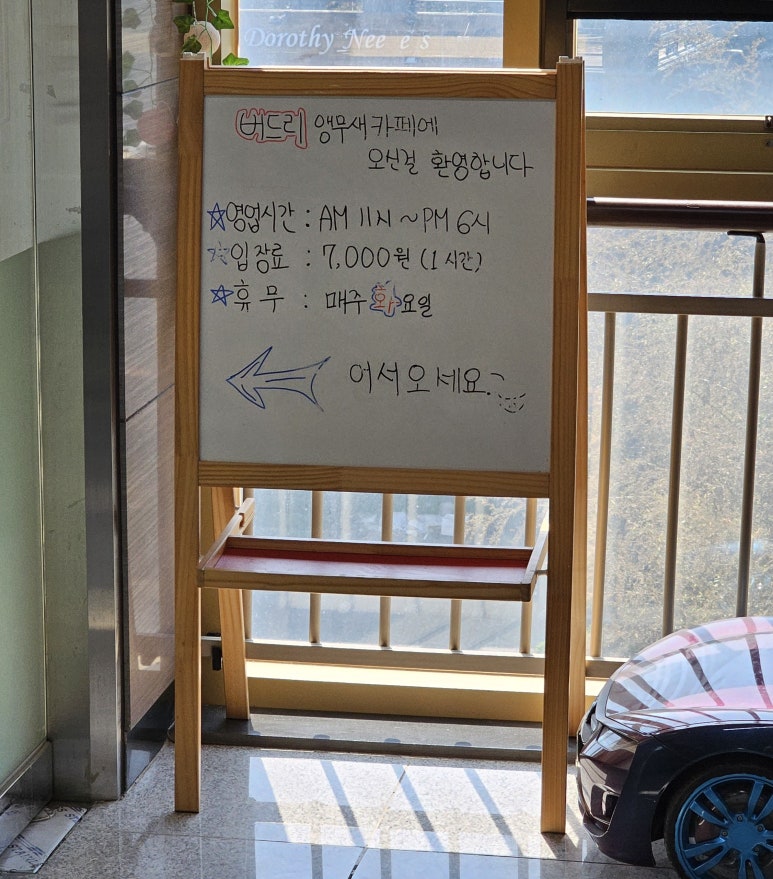 Dorothy Nee e's
버드리 앵무새카페에
오신걸 환영합니다
☆영업시간 : AM 11시 ~ PM 6시
☆입장료 : 7,000원 (1시간)
☆휴무 : 매주 화요일
어서오세요.^